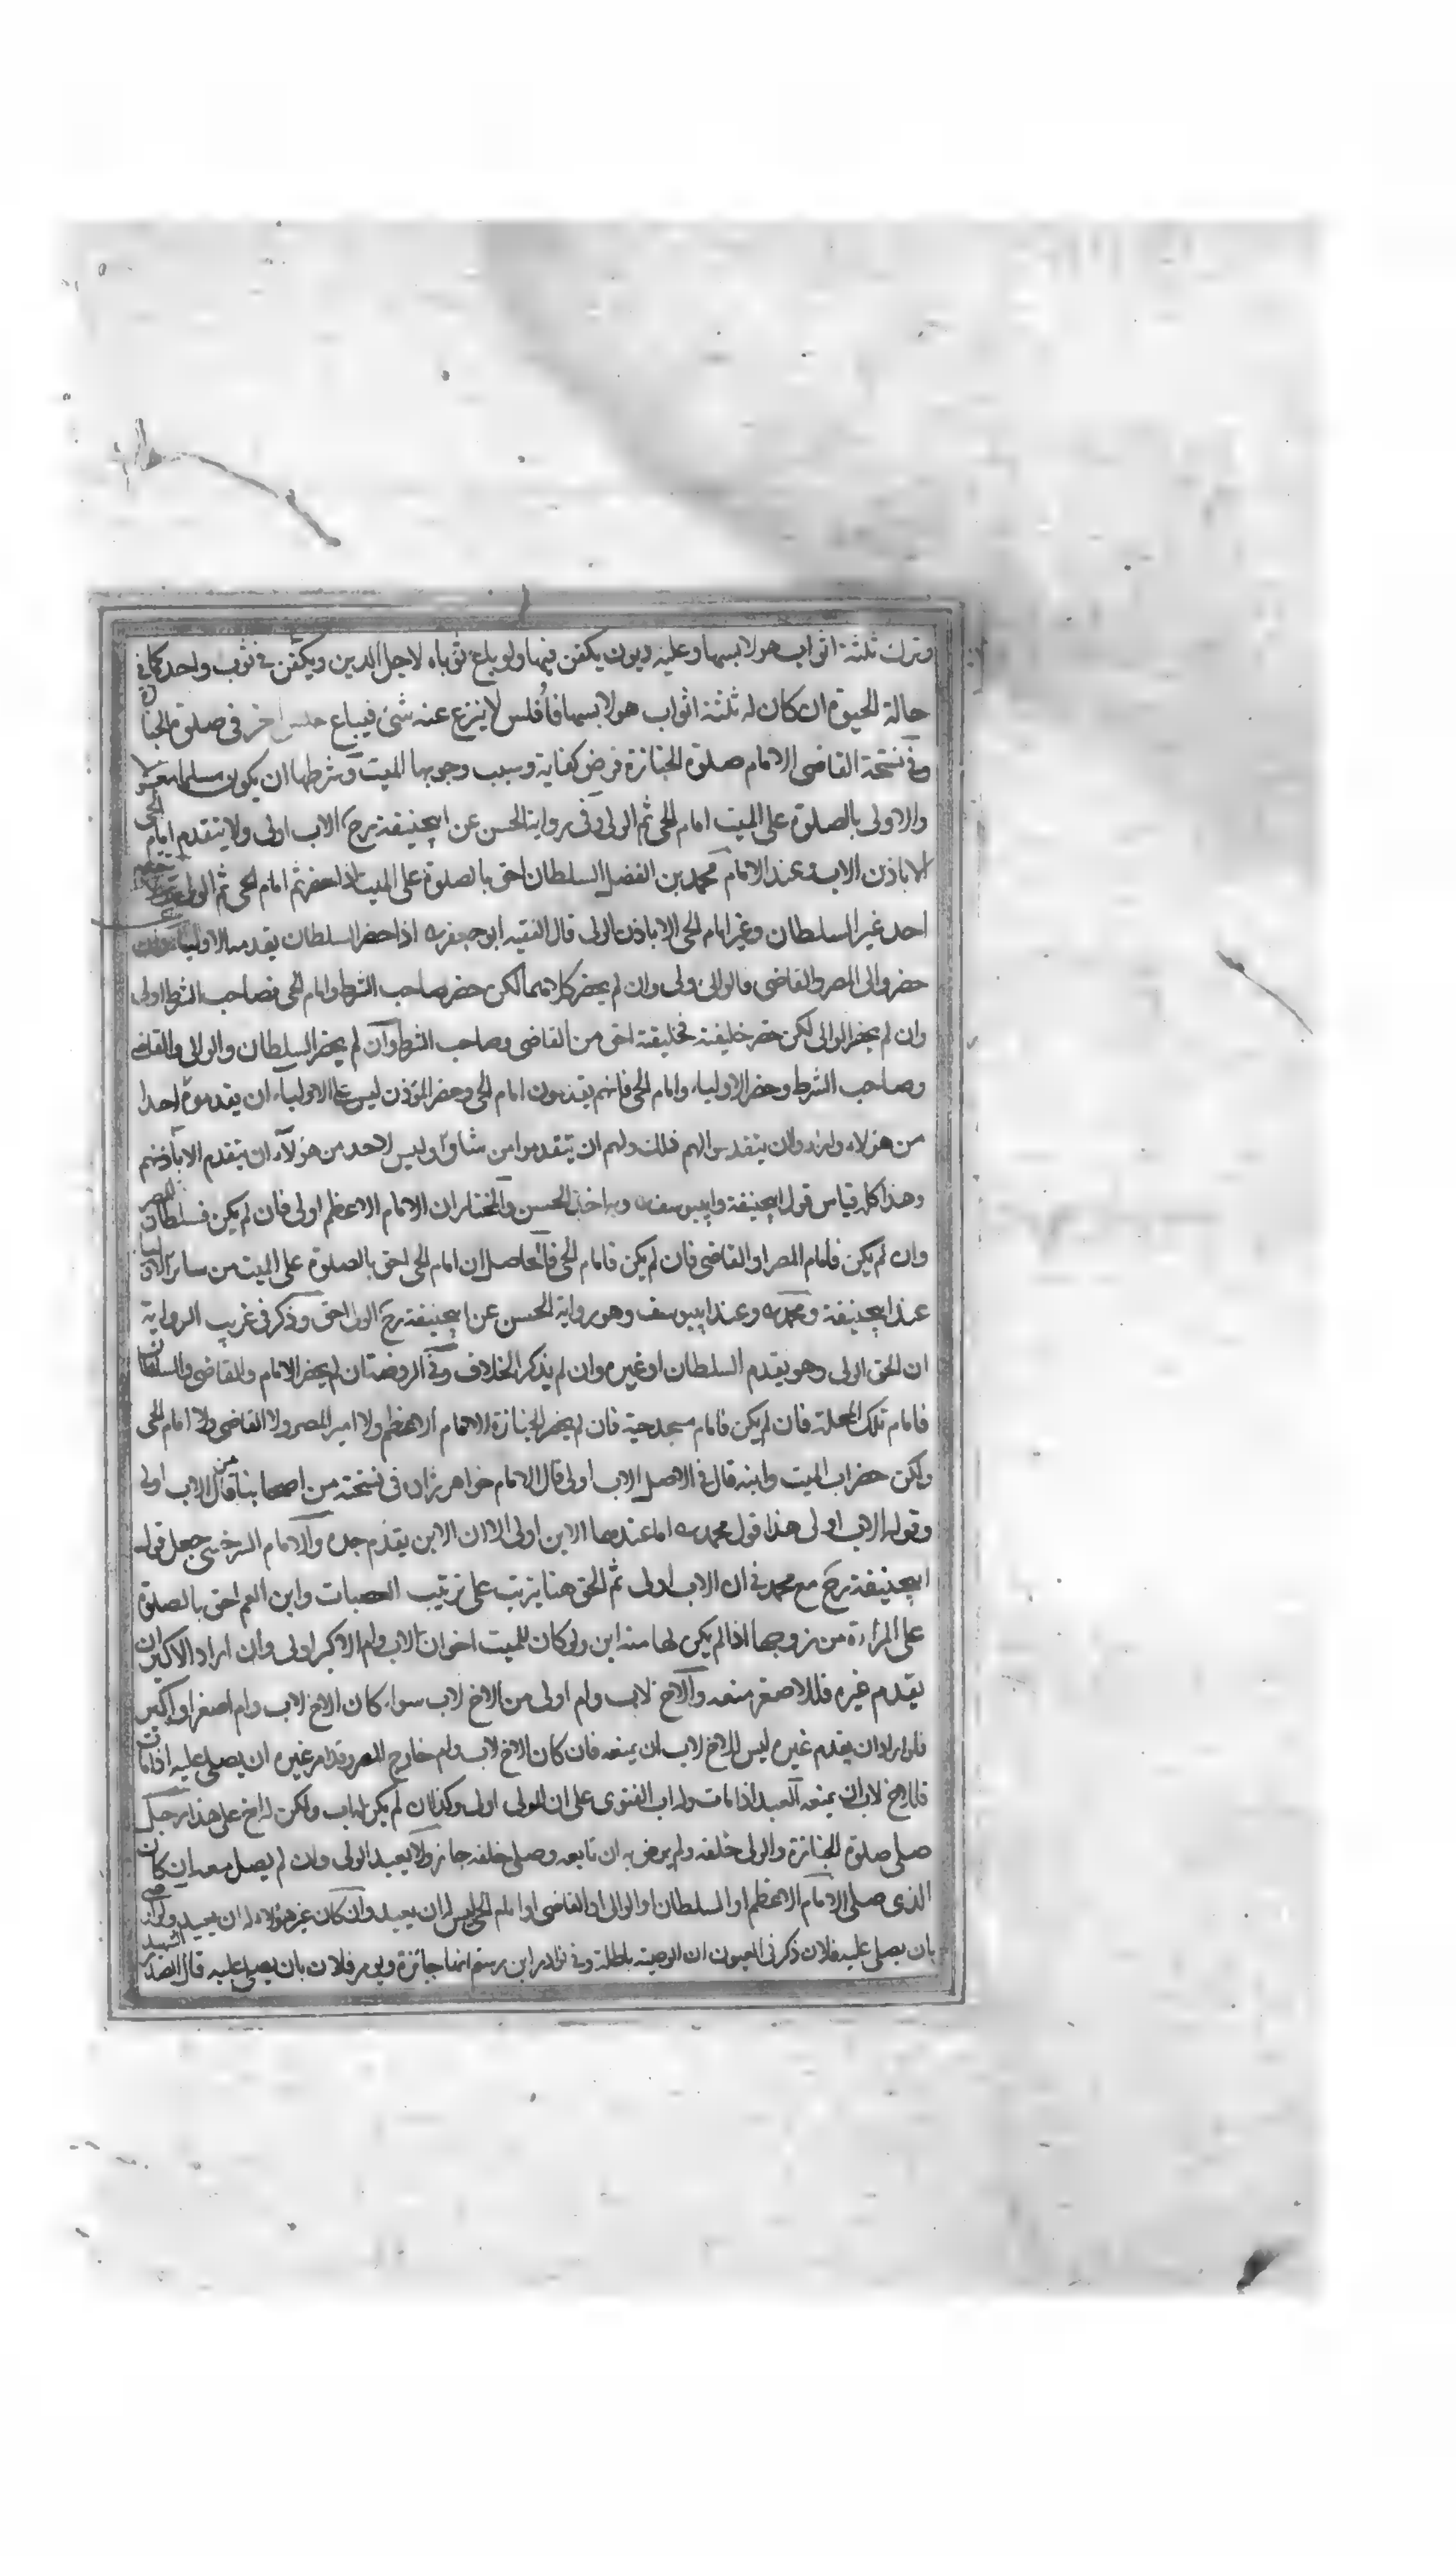 وترك ثلثة اثواب هو لابسها وعليه ديون يكفن فيها ولو بلغ ثوباه لاجل الدين ويكفن فى ثوب واحد كما فى
حالة الحيوة ان كان له ثلثة اثواب هو لابسها فأفلس لا ينزع عنه شئ فيباع اخر فى صلوة الجنازة
وفى نسخة القاضى الامام صلوة الجنازة فرض كفاية وسبب وجوبها الميت وشرطها ان يكون مسلما مغسولا
والاولى بالصلوة على الميت امام الحى ثم الولى وفى رواية الحسن عن ابيحنيفة رح الاب اولى ولا يتقدم امام الحى
الا باذن الاب وعند الامام محمد بن الفضل السلطان احق بالصلوة على الميت اذا حضر ثم امام الحى ثم الولى
احد غير السلطان وغير امام الحى الا باذن الولى قال الفقيه ابو جعفر ره اذا حضر السلطان يقدمه الاولياء وان
حضر والى المصر والقاضى فالوالى اولى وان لم يحضر كلاهما لكن حضر صاحب الشرط وامام الحى فصاحب الشرط اولى
وان لم يحضر الوالى لكن حضر خليفته فخليفته احق من القاضى وصاحب الشرط وان لم يحضر السلطان والوالى والقاضى
وصاحب الشرط وحضر الاولياء وامام الحى فانهم يقدمون امام الحى وحضر المؤذن ليس على الاولياء ان يقدموا احدا
من هؤلاء وان يتقدموا لهم ذلك ولهم ان يتقدموا من شاؤا وليس لاحد من هؤلاء ان يتقدم الا باذنهم
وهذا كله قياس قول ابيحنيفة وابييوسف ره وبه اخذ الحسن والمختار ان الامام الاعظم اولى فان لم يكن فسلطان المصر
وان لم يكن فامام المصر او القاضى فان لم يكن فامام الحى فالحاصل ان امام الحى احق بالصلوة على الميت من سائر الاولياء
عند ابيحنيفة ومحمد ره وعند ابييوسف وهو رواية الحسن عن ابيحنيفة رح الولى احق وذكر فى غريب الرواية
ان الحق الولى وهو يقدم السلطان او غيره وان لم يذكر الخلاف وفى الروضة ان لم يحضر الامام والقاضى والسلطان
فامام تلك المحلة فان لم يكن فامام مسجد حيه فان لم يحضر الجنازة الامام الاعظم ولا امير المصر ولا القاضى ولا امام الحى
ولكن حضر اب الميت وابنه قال فى الاصل الاب اولى قال الامام خواهر زاده فى نسخته من اصحابنا من قال الاب اولى
وقوله الاب اولى هذا قول محمد ره اما عندهما الابن اولى الا ان الابن يقدم جده والامام السرخسى جعل قول
ابيحنيفة رح مع محمد فى ان الاب اولى ثم الحق هنا يرتب على ترتيب العصبات وابن العم احق بالصلوة
على المراءة من زوجها اذا لم يكن لها منه ابن ولو كان للميت اخوان لاب وام الاكبر اولى وان اراد الاكبر ان
يقدم غيره فللاصغر منعه والاخ لاب وام اولى من الاخ لاب سواء كان الاخ لاب وام اصغر او اكبر
فلو اراد ان يقدم غيره ليس للاخ لاب ان يمنعه فان كان الاخ لاب وام خارج المصر وقد امر غيره ان يصلى عليه اذا مات
فللاخ لاب ان يمنعه العبد اذا مات وله اب الفتوى على ان المولى اولى وكذا ان لم يكن له اب ولكن له اخ على هذا رجل
صلى صلوة الجنازة والولى خلفه ولم يرض به ان تابعه وصلى خلفه جاز ولا يعيد الولى وان لم يصل معه ان كان
الذى صلى الامام الاعظم او السلطان او الوالى او القاضى او امام الحى ليس له ان يعيد وان كان غير هؤلاء له ان يعيد ولو اوصى
بان يصلى عليه فلان ذكر فى العيون ان الوصية باطلة وفى نوادر ابن رستم انها جائزة ويؤمر فلان بان يصلى عليه قال الصدر الشهيد